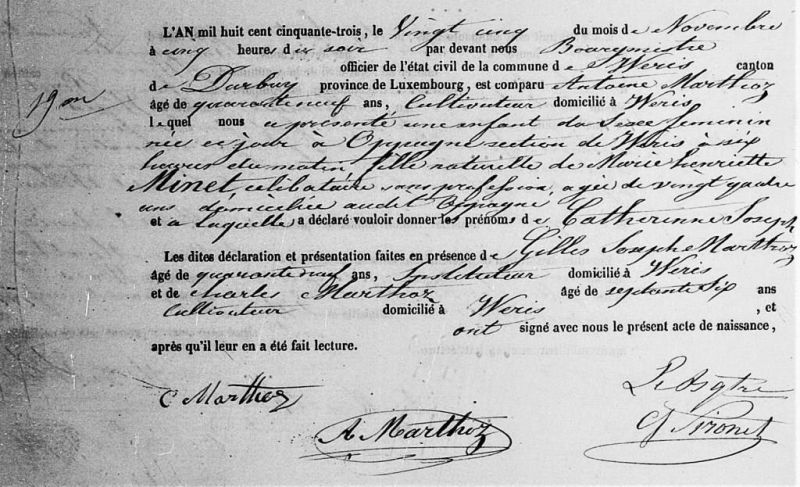 L'AN mil huit cent cinquante-trois, le Vingt cinq du mois de Novembre
à cinq heures du soir par devant nous Bourgmestre
officier de l'état civil de la commune de Weris canton
de Durbuy province de Luxembourg, est comparu Antoine Marthoz
19 on
âgé de quarante neuf ans, Cultivateur domicilié à Weris
lequel nous a présenté une enfant du Sexe feminin
née ce jour à Oppagne section de Wéris à six
heures du matin, fille naturelle de Marie henriette
Minet célibataire sans profession, agée de vingt quatre
ans domiciliée audit Oppagne
et à laquelle a déclaré vouloir donner les prénoms de Catherinne Joseph
Les dites déclaration et présentation faites en présence de Gilles Joseph Marthoz
âgé de quarante neuf ans, Instituteur domicilié à Weris
et de charles Marthoz âgé de septante Six ans
Cultivateur domicilié à Weris , et
ont signé avec nous le présent acte de naissance,
après qu'il leur en a été fait lecture.
C Marthoz
Le Bgtre
A Marthoz